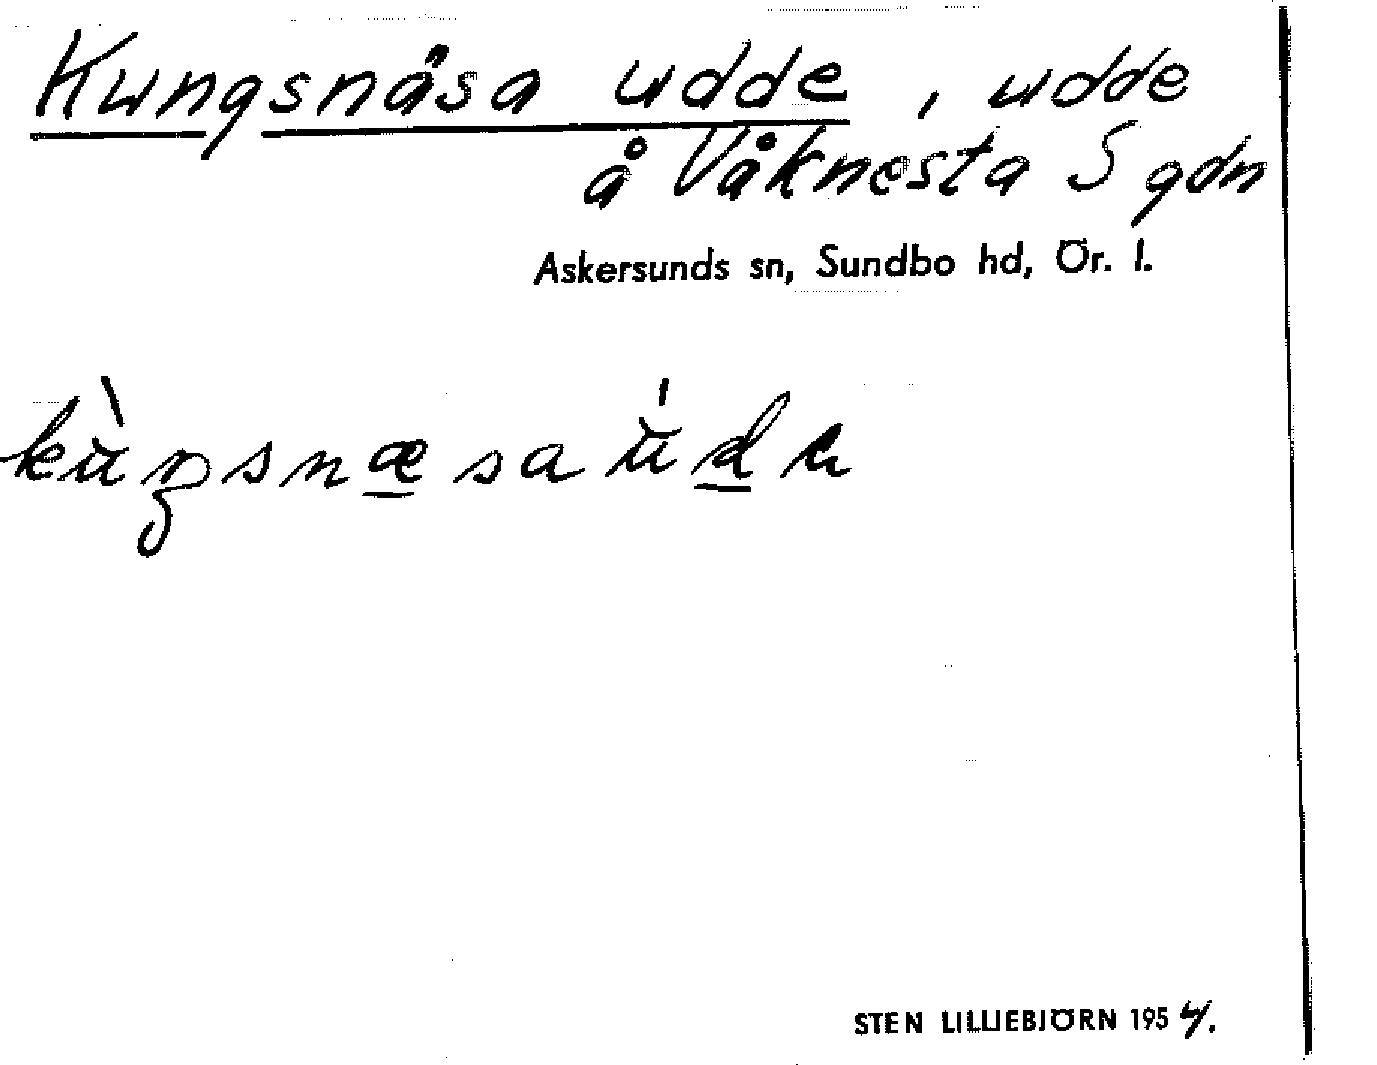 Kungsnäsa udde, udde
å Våknesta S gdn
Askersunds sn, Sundbo hd, Ör. l.
STEN LILLIEBJÖRN 1954.